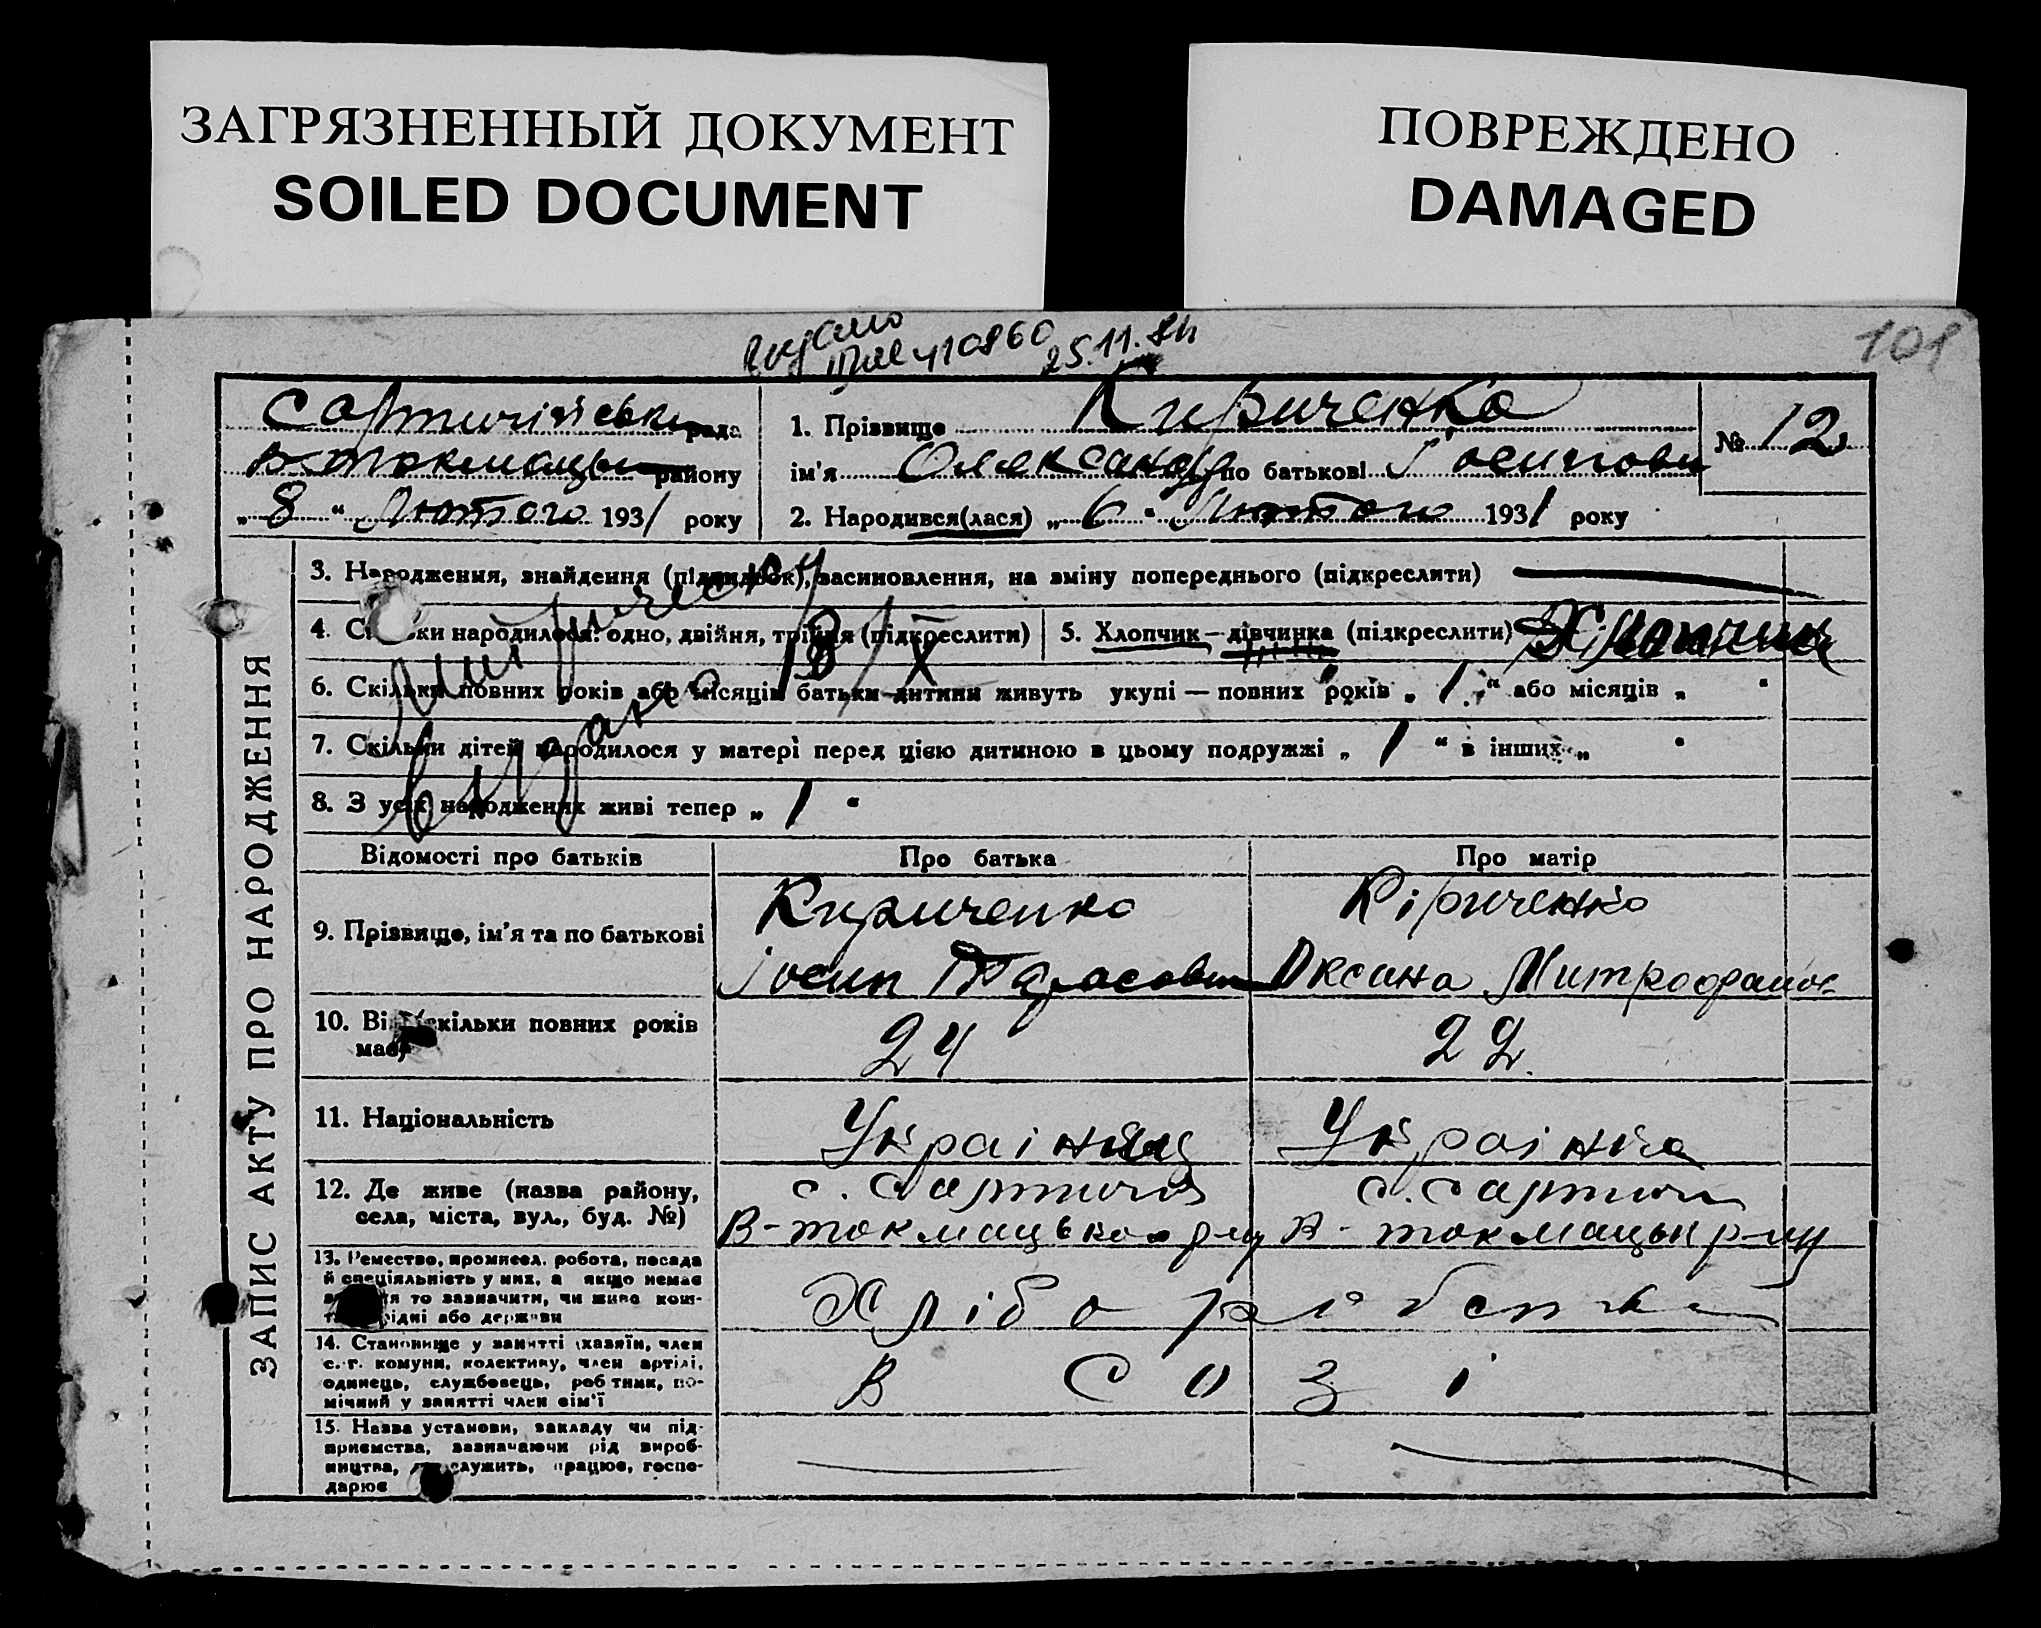 ЗАГРЯЗНЕННЫЙ ДОКУМЕНТ
SOILED DOCUMENT
ПОВРЕЖДЕНО
DAMAGED
101
25.11.
рада
району
„ 8 " Лютого 1931 року
1. Прізвище Кириченко
ім'я Олександр по батькові Іосипови
№ 12
2. Народився(лася) „ 6 " Лютого 1931 року
ЗАПИС АКТУ ПРО НАРОДЖЕННЯ
3. Народження, знайдення (підкидьок), засиновлення, на зміну попереднього (підкреслити)
4. Скільки народилося: одно, двійня, трійня (підкреслити)
5. Хлопчик — дівчинка (підкреслити) Хлопчик
6. Скільки повних років або місяців батьки дитини живуть укупі — повних років „ 1 " або місяців „ "
7. Скільки дітей народилося у матері перед цією дитиною в цьому подружжі „ 1 " в інших „ "
8. З усіх народжених живі тепер „ 1 "
Відомості про батьків
Про батька
Про матір
9. Прізвище, ім'я та по батькові
Кириченко
Іосип Тарасович
Кіриченко
Оксана Митрофанов
10. Вік (скільки повних років
має)
24
22
11. Національність
Українец
Українка
12. Де живе (назва району,
села, міста, вул., буд. №)
с.
В-токмацького р-ну
с.
В-токмацьк р-ну
13. Ремество, промисел, робота, посада
й спеціяльність у них, а якщо немає
заняття то зазначити, чи живе кош-
том рідні або держави
Хлібороб
14. Становище у занятті (хазяїн, член
с.-г. комуни, колективу, член артілі,
одинець, службовець, робітник, по-
мічний у занятті член сім'ї
В СОЗі
15. Назва установи, закладу чи під-
приємства, зазначаючи рід вироб-
ництва, де служить, працює, госпо-
дарює